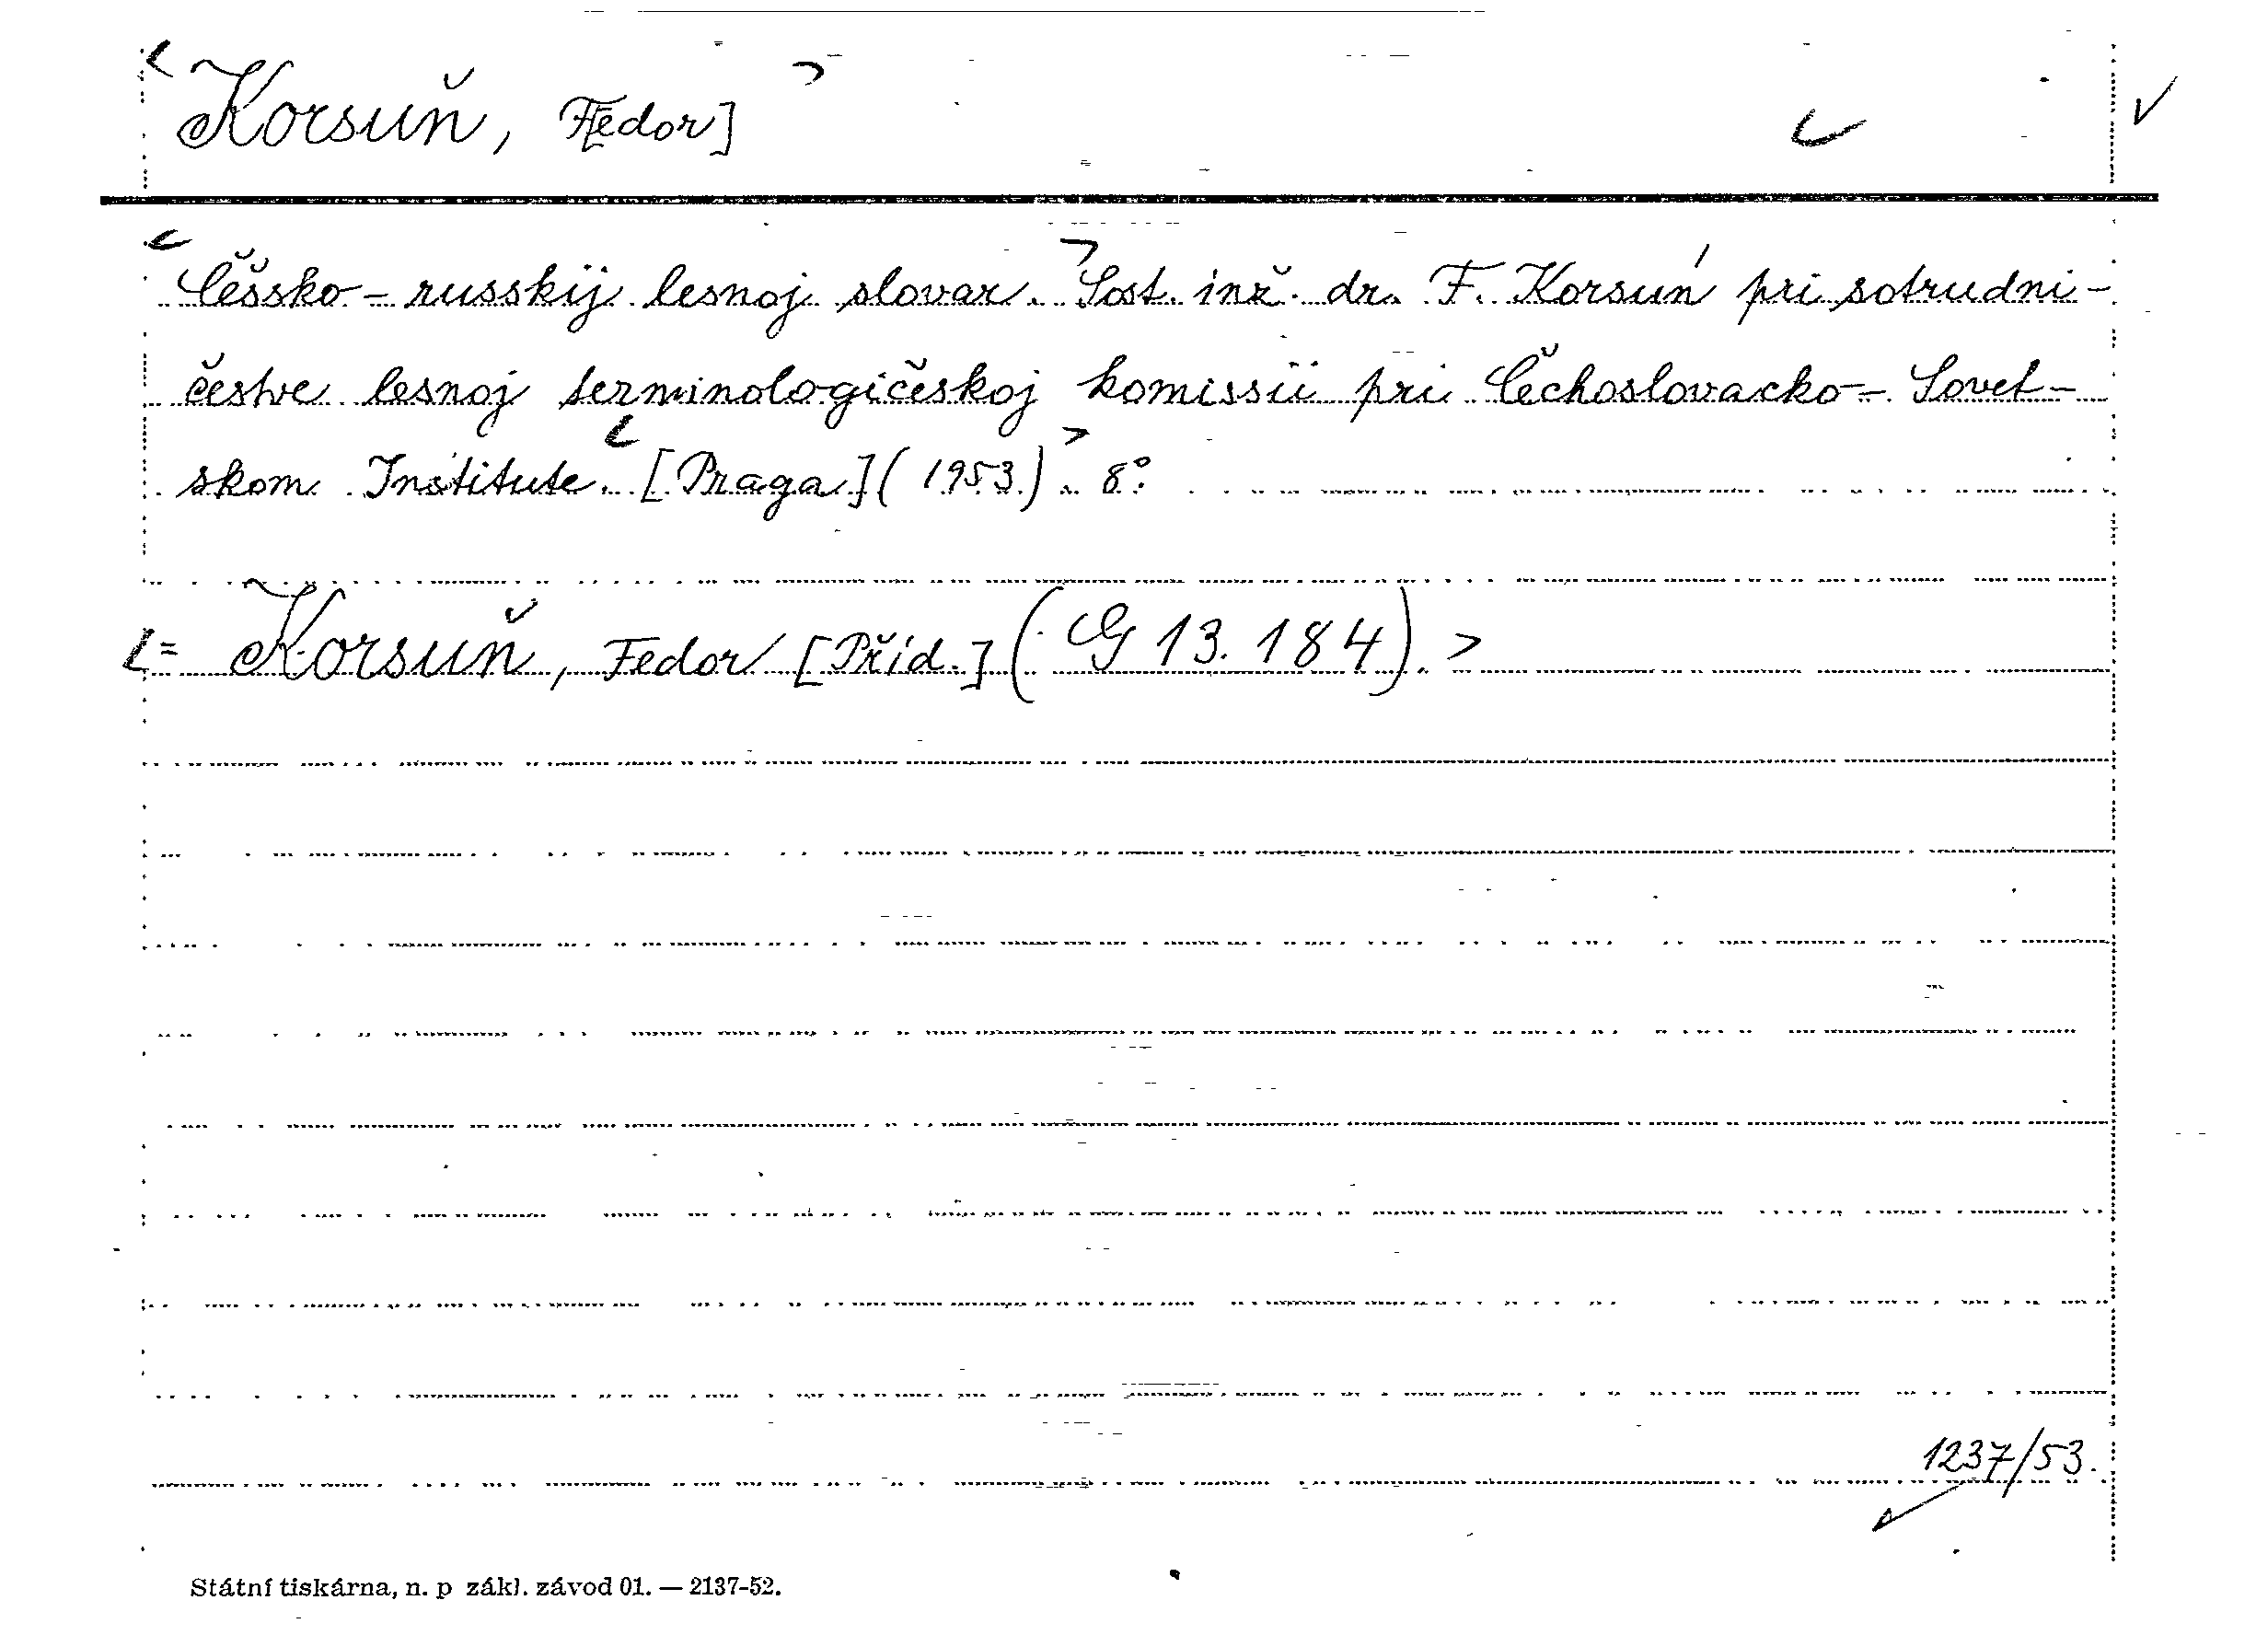 Korsuň, F[edor]
Češsko-russkij lesnoj slovar. Sost. inž. dr. F. Korsuń pri sotrudni-
čestve lesnoj terminologičeskoj komissii pri Čechoslovacko-Sovet-
skom Institute. [Praga] (1953). 8°.
= Korsuň, Fedor [Příd.] (G 13.184).
1237/53.
Státní tiskárna, n. p zákl. závod 01. — 2137-52.